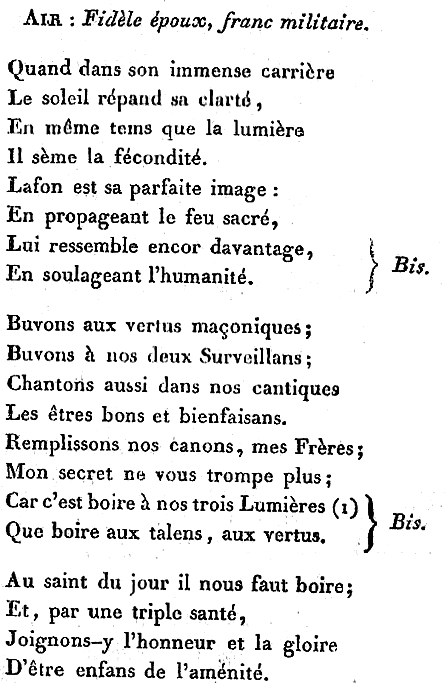 AIR : Fidèle époux, franc militaire.
Quand dans son immense carrière
Le soleil répand sa clarté,
En même tems que la lumière
Il sème la fécondité.
Lafon est sa parfaite image :
En propageant le feu sacré,
Lui ressemble encor davantage,
En soulageant l'humanité.
Bis.
Buvons aux vertus maçoniques;
Buvons à nos deux Surveillans;
Chantons aussi dans nos cantiques
Les êtres bons et bienfaisans.
Remplissons nos canons, mes Frères;
Mon secret ne vous trompe plus;
Car c'est boire à nos trois Lumières (1)
Que boire aux talens, aux vertus.
Bis.
Au saint du jour il nous faut boire;
Et, par une triple santé,
Joignons-y l'honneur et la gloire
D'être enfans de l'aménité.